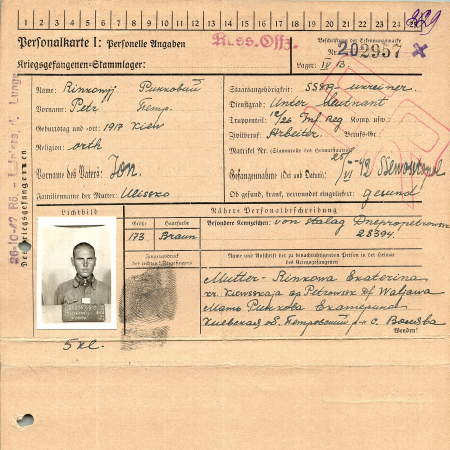 1 2 3 4 5 6 7 8 9 10 11 12 13 14 15 16 17 18 19 20 21 22 23 24 25
Personalkarte I: Personelle Angaben
Russ. Offz.
Beschriftung der Erkennungsmarke
Nr. 202957
Kriegsgefangenen-Stammlager:
Lager: IV B.
Des Kriegsgefangenen
Name: Rinkowyj Ринковый
Vorname: Petr Петр.
Geburtstag und -ort: 1917 Kiew
Religion: orth
Vorname des Vaters: Jon.
Familienname der Mutter:
Staatsangehörigkeit: SSSR-ukrainer.
Dienstgrad: Unter Leutnant
Truppenteil: 12/26 Inf Reg Komp. usw.:
Zivilberuf: Arbeiter Berufs-Gr.:
Matrikel Nr. (Stammrolle des Heimatstaates)
Gefangennahme (Ort und Datum): 25/VI-42 Ssewastopol
Ob gesund, krank, verwundet eingeliefert: gesund
Lichtbild
Nähere Personalbeschreibung
Größe Haarfarbe
173 Braun
Besondere Kennzeichen: von Stalag Dnepropetrowsk
28394.
Fingerabdruck
des rechten Zeigefingers
Name und Anschrift der zu benachrichtigenden Person in der Heimat
des Kriegsgefangenen
Mutter-Rinkowa Ekaterina
Kiewskaja Petrowsk Df Waljawa
Мать Ринкова Екатерина
Киевская об. Петровский р-н с. Валява
Wenden!